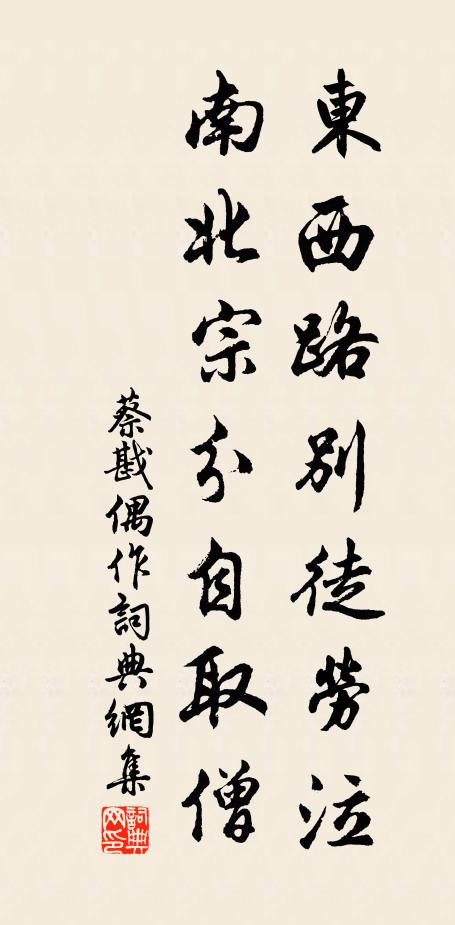 東西路別徒勞泣
南北宗分自取僧
蔡戡偶作詞典網集
詞典网印